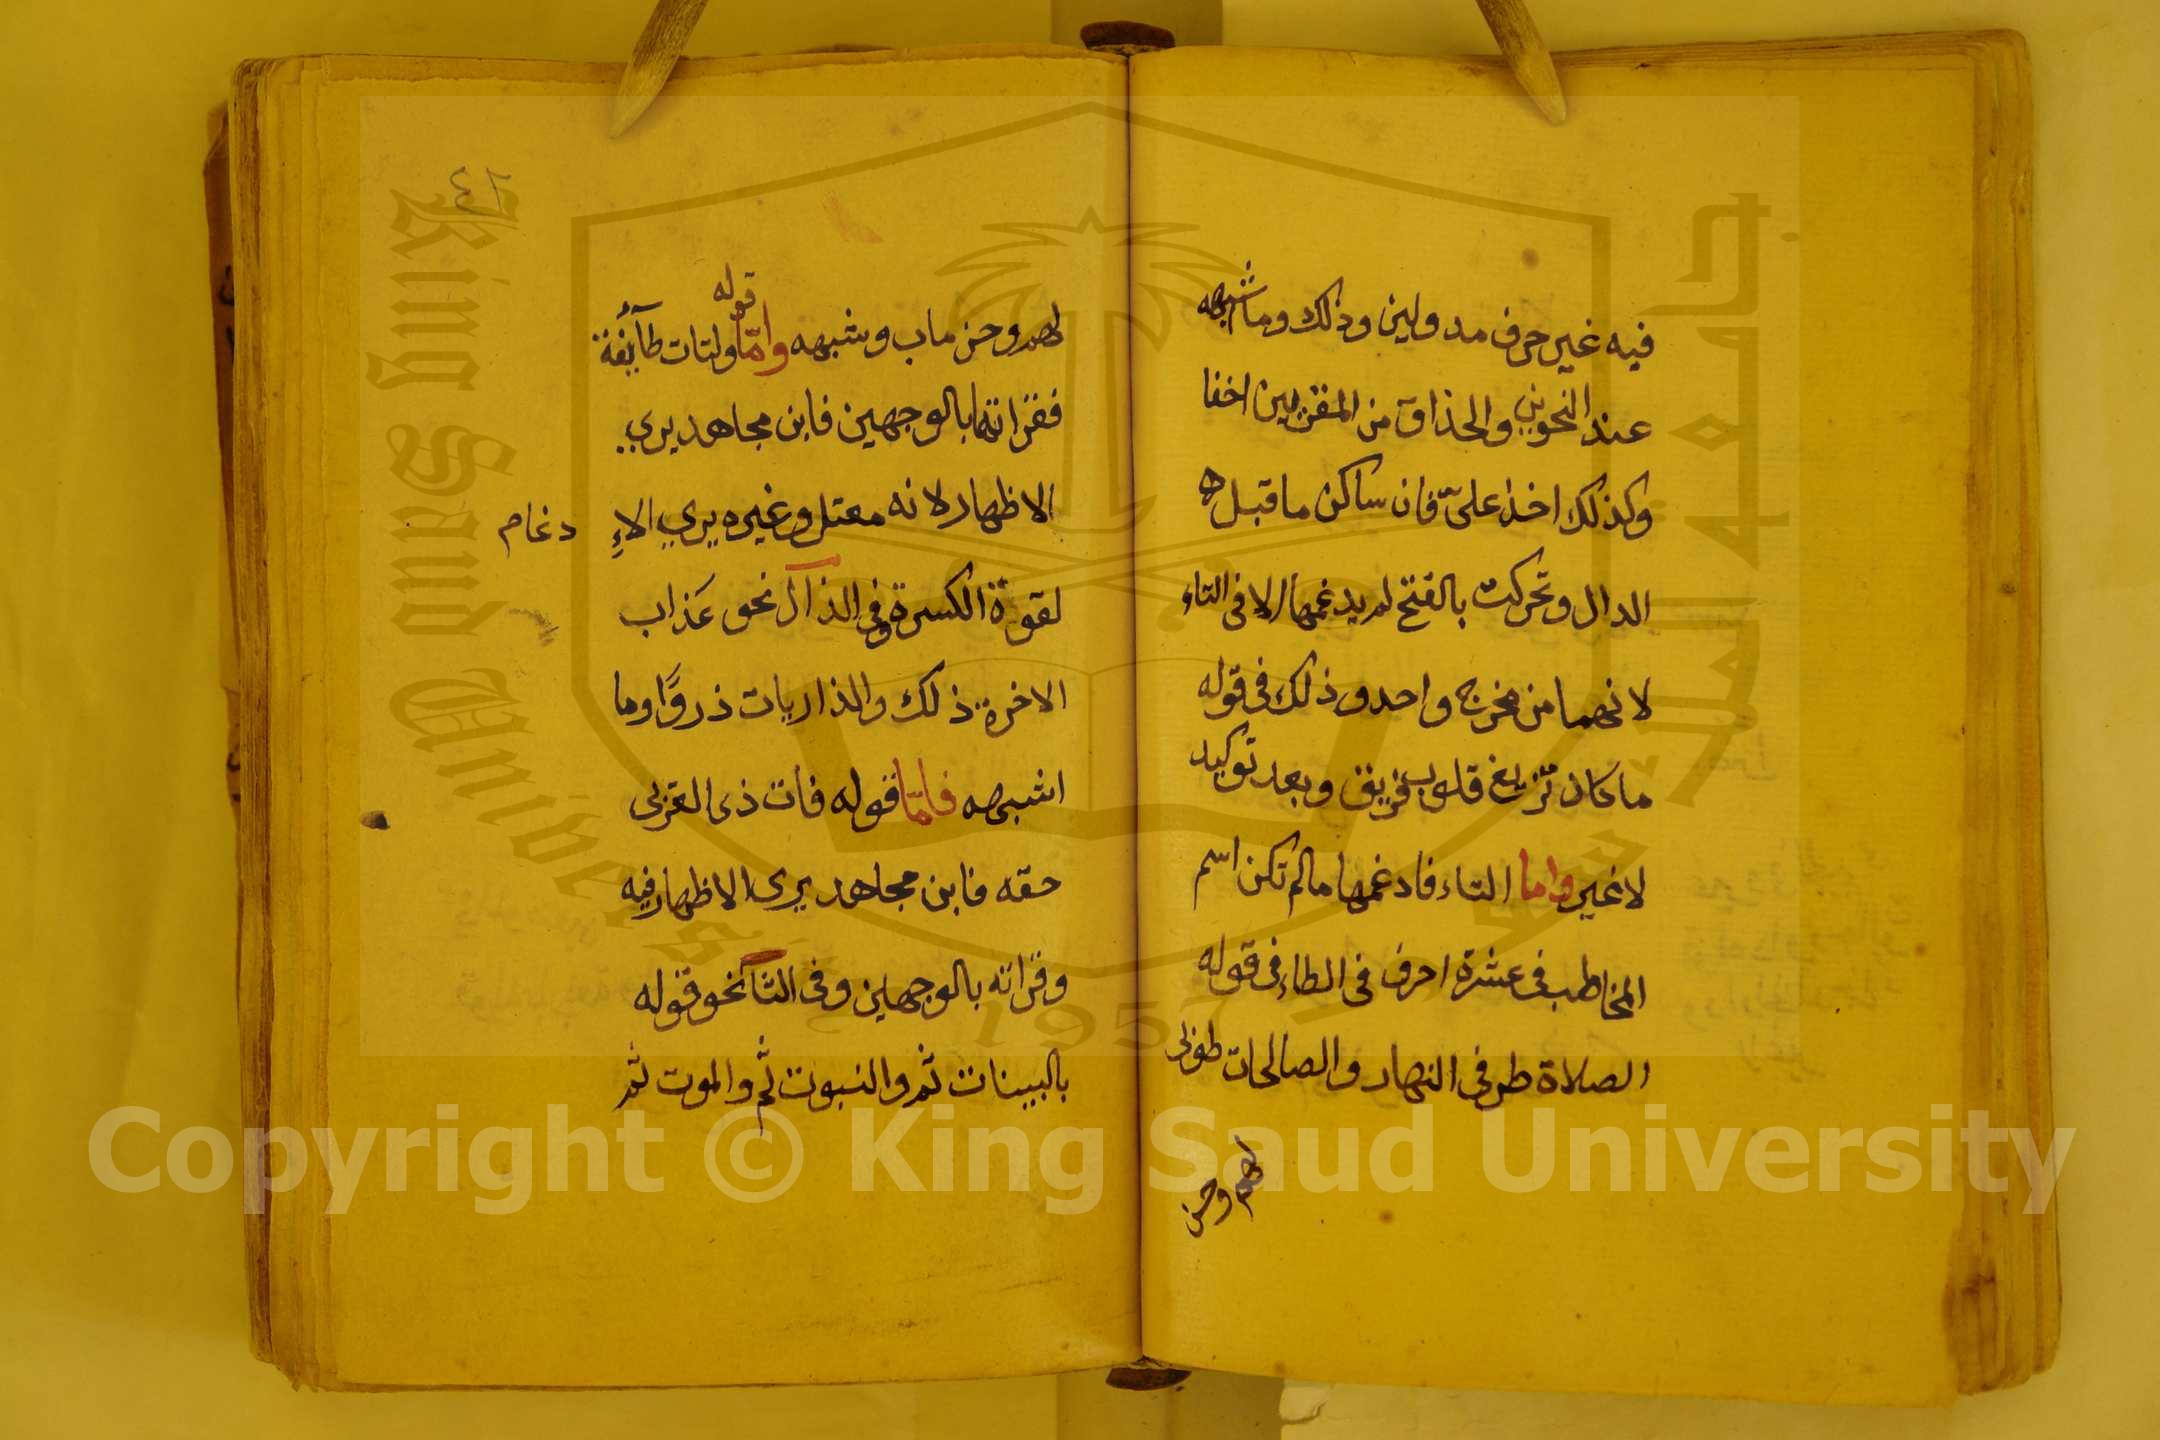 فيه غير حرف مد ولين وذلك وما شبهه
عند النحويين والحذاق من المقريين اخفا
وكذلك اخذ علي فان ساكن ما قبل ه
الدال وتحركت بالفتح لم يدغمها الا في التاء
لانهما من مخرج واحد وذلك في قوله
ما كاد تزيغ قلوب فريق وبعد توكيد
لا غير واما التاء فادغمها مالم تكن اسم
المخاطب في عشرة احرف في الطاء في قوله
الصلاة طرفي النهار والصالحات طوبى
لهم وحسن
٤٦
لهم وحسن ماب وشبهه واما قوله ولتات طآئفة
فقراتها بالوجهين فابن مجاهد يرى
الاظهار لانه معتل وغيره يرى الاِدغام
لقوة الكسرة وفي الذال نحو عذاب
الاخرة ذلك والذاريات ذروًا وما
اشبهه فامّا قوله فات ذى القربى
حقه فابن مجاهد يرى الاظهار فيه
وقراته بالوجهين وفى الثا نحو قوله
بالبينات ثم والنبوت ثم والموت ثم
King Saud University
جامعة الملك سعود
1957
Copyright © King Saud University